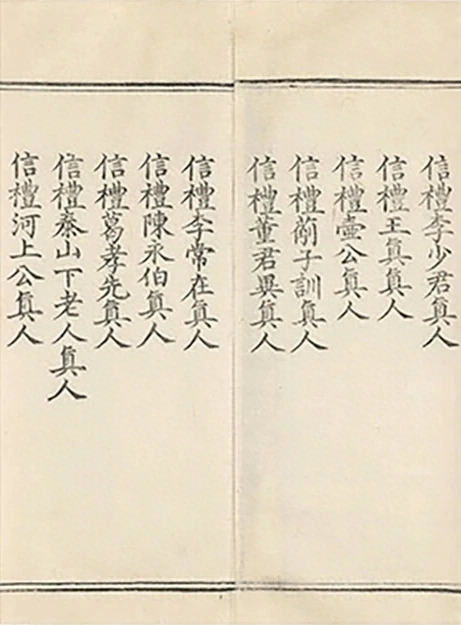 信禮李少君眞人
信禮王眞眞人
信禮壺公眞人
信禮子訓眞人
信禮董君異眞人
信禮李常在眞人
信禮陳永伯眞人
信禮葛孝先眞人
信禮泰山下老人眞人
信禮河上公眞人